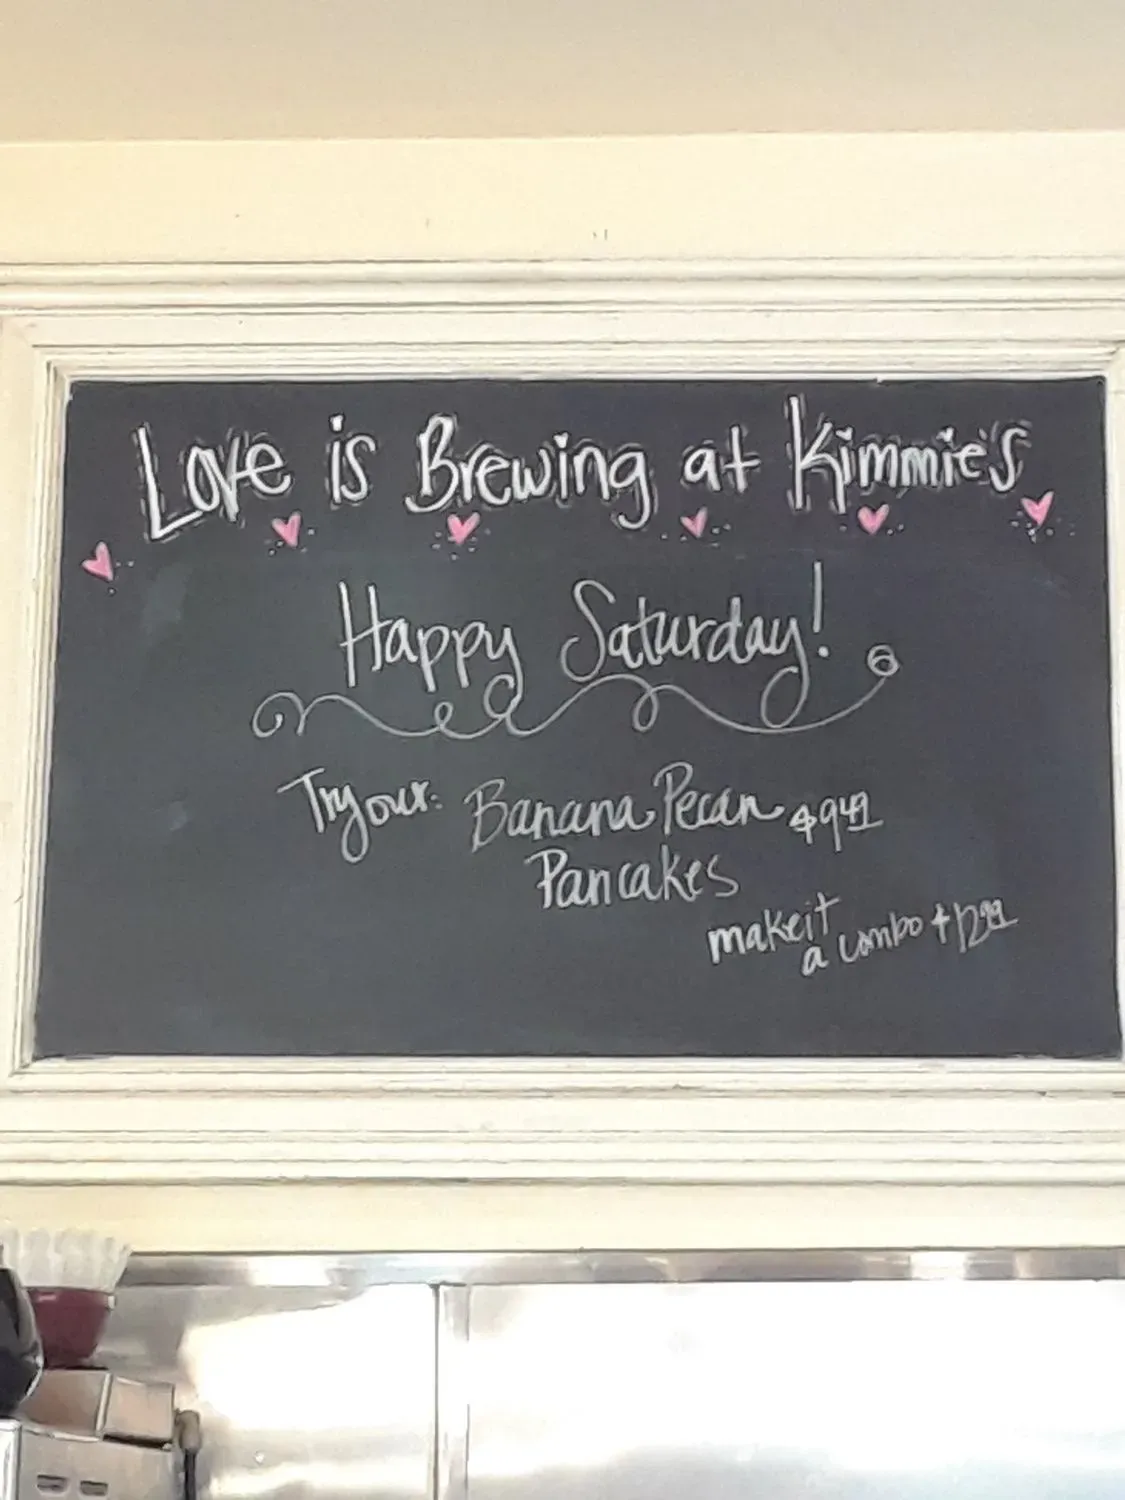 Love is Brewing at Kimmie's
Happy Saturday!
Try our: Banana Pecan $9.49
Pancakes
make it
a combo $12.99